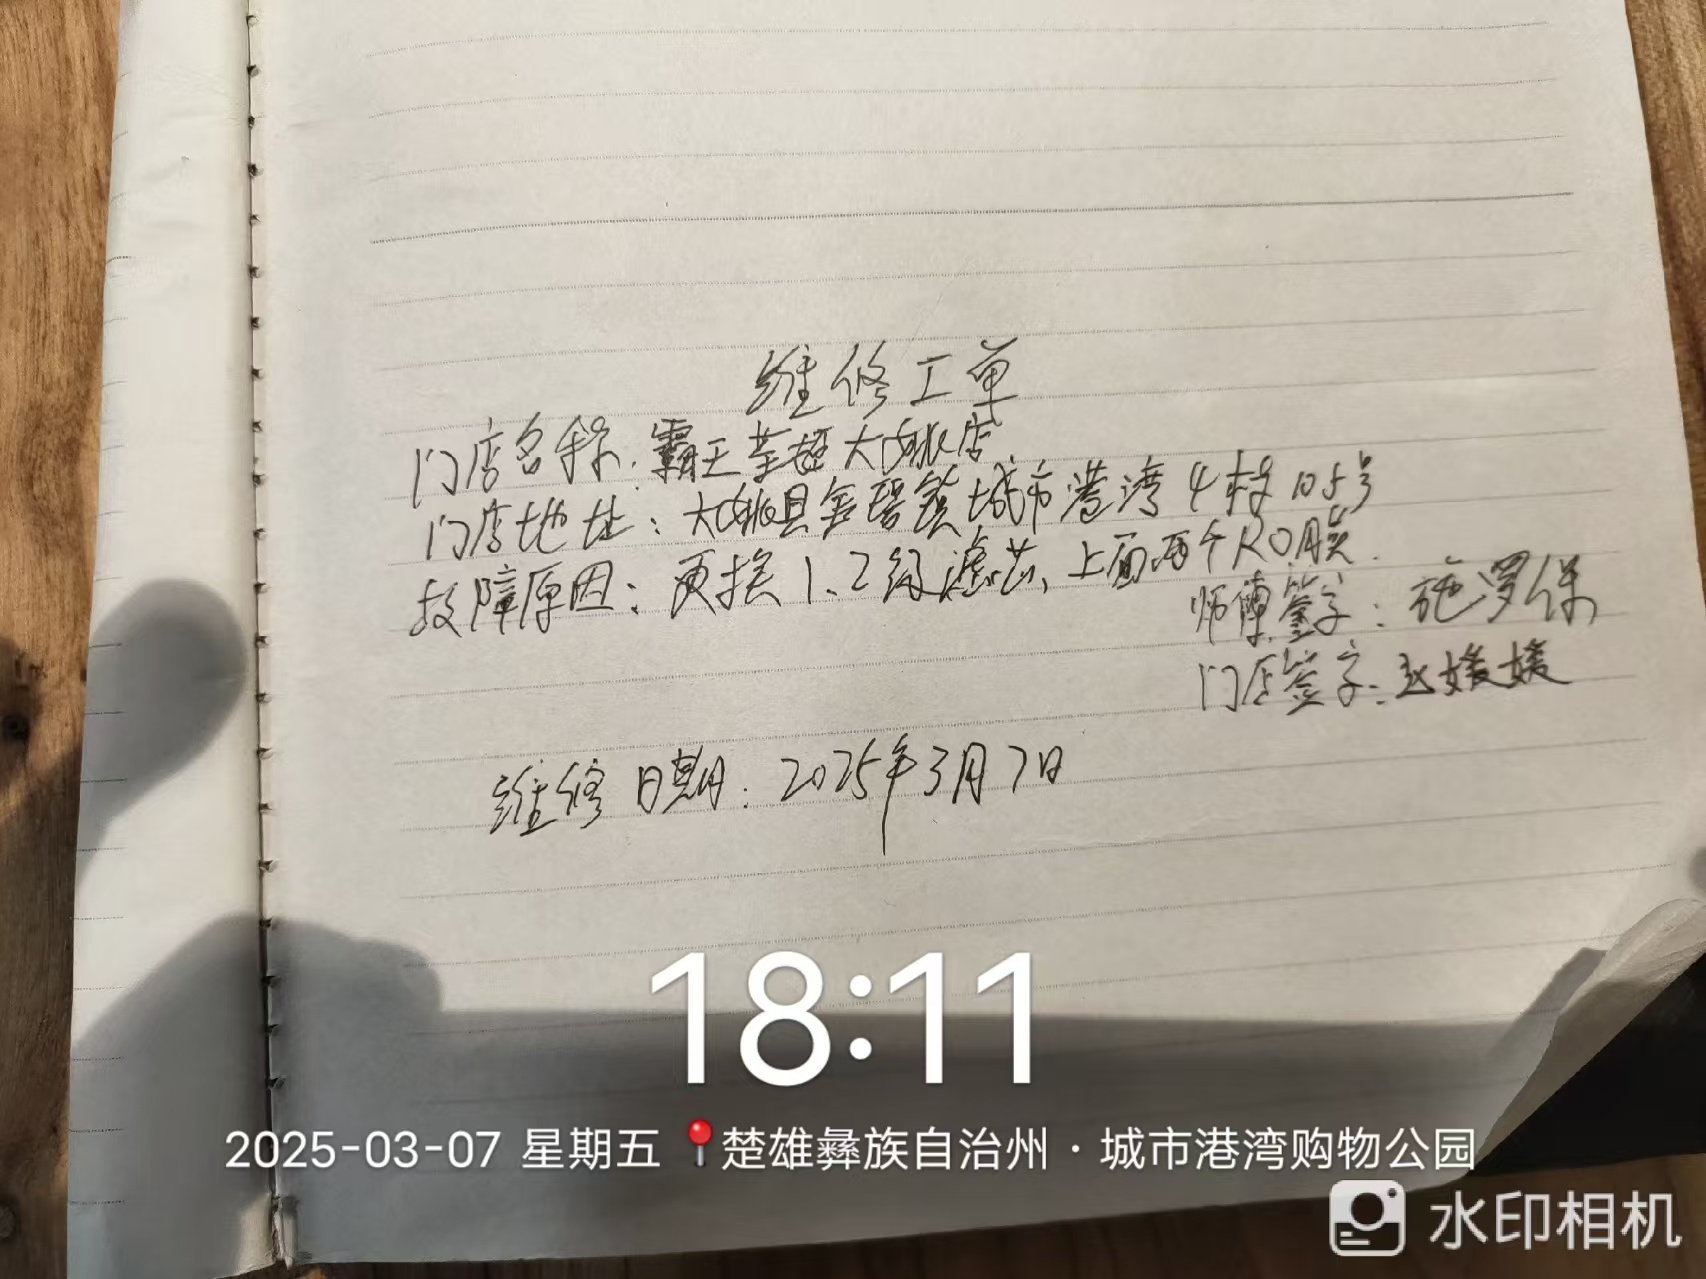 维修工单
门店名称：霸王茶姬大姚店
门店地址：大姚县金碧镇城市港湾4栋105号
故障原因：更换1、2级滤芯、上面两个RO膜.
师傅签字：施罗保
门店签字：赵媛媛
维修日期：2025年3月7日
18:11
2025-03-07 星期五 楚雄彝族自治州·城市港湾购物公园
水印相机